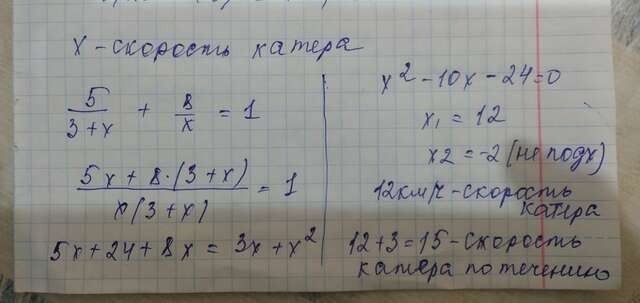 x - скорость катера
5/(3+x) + 8/x = 1
(5x+8·(3+x))/(x(3+x)) = 1
5x+24+8x = 3x+x²
x²-10x-24=0
x₁ = 12
x2 = -2 (не подх)
12км/ч-скорость
катера
12+3=15-скорость
катера по течению